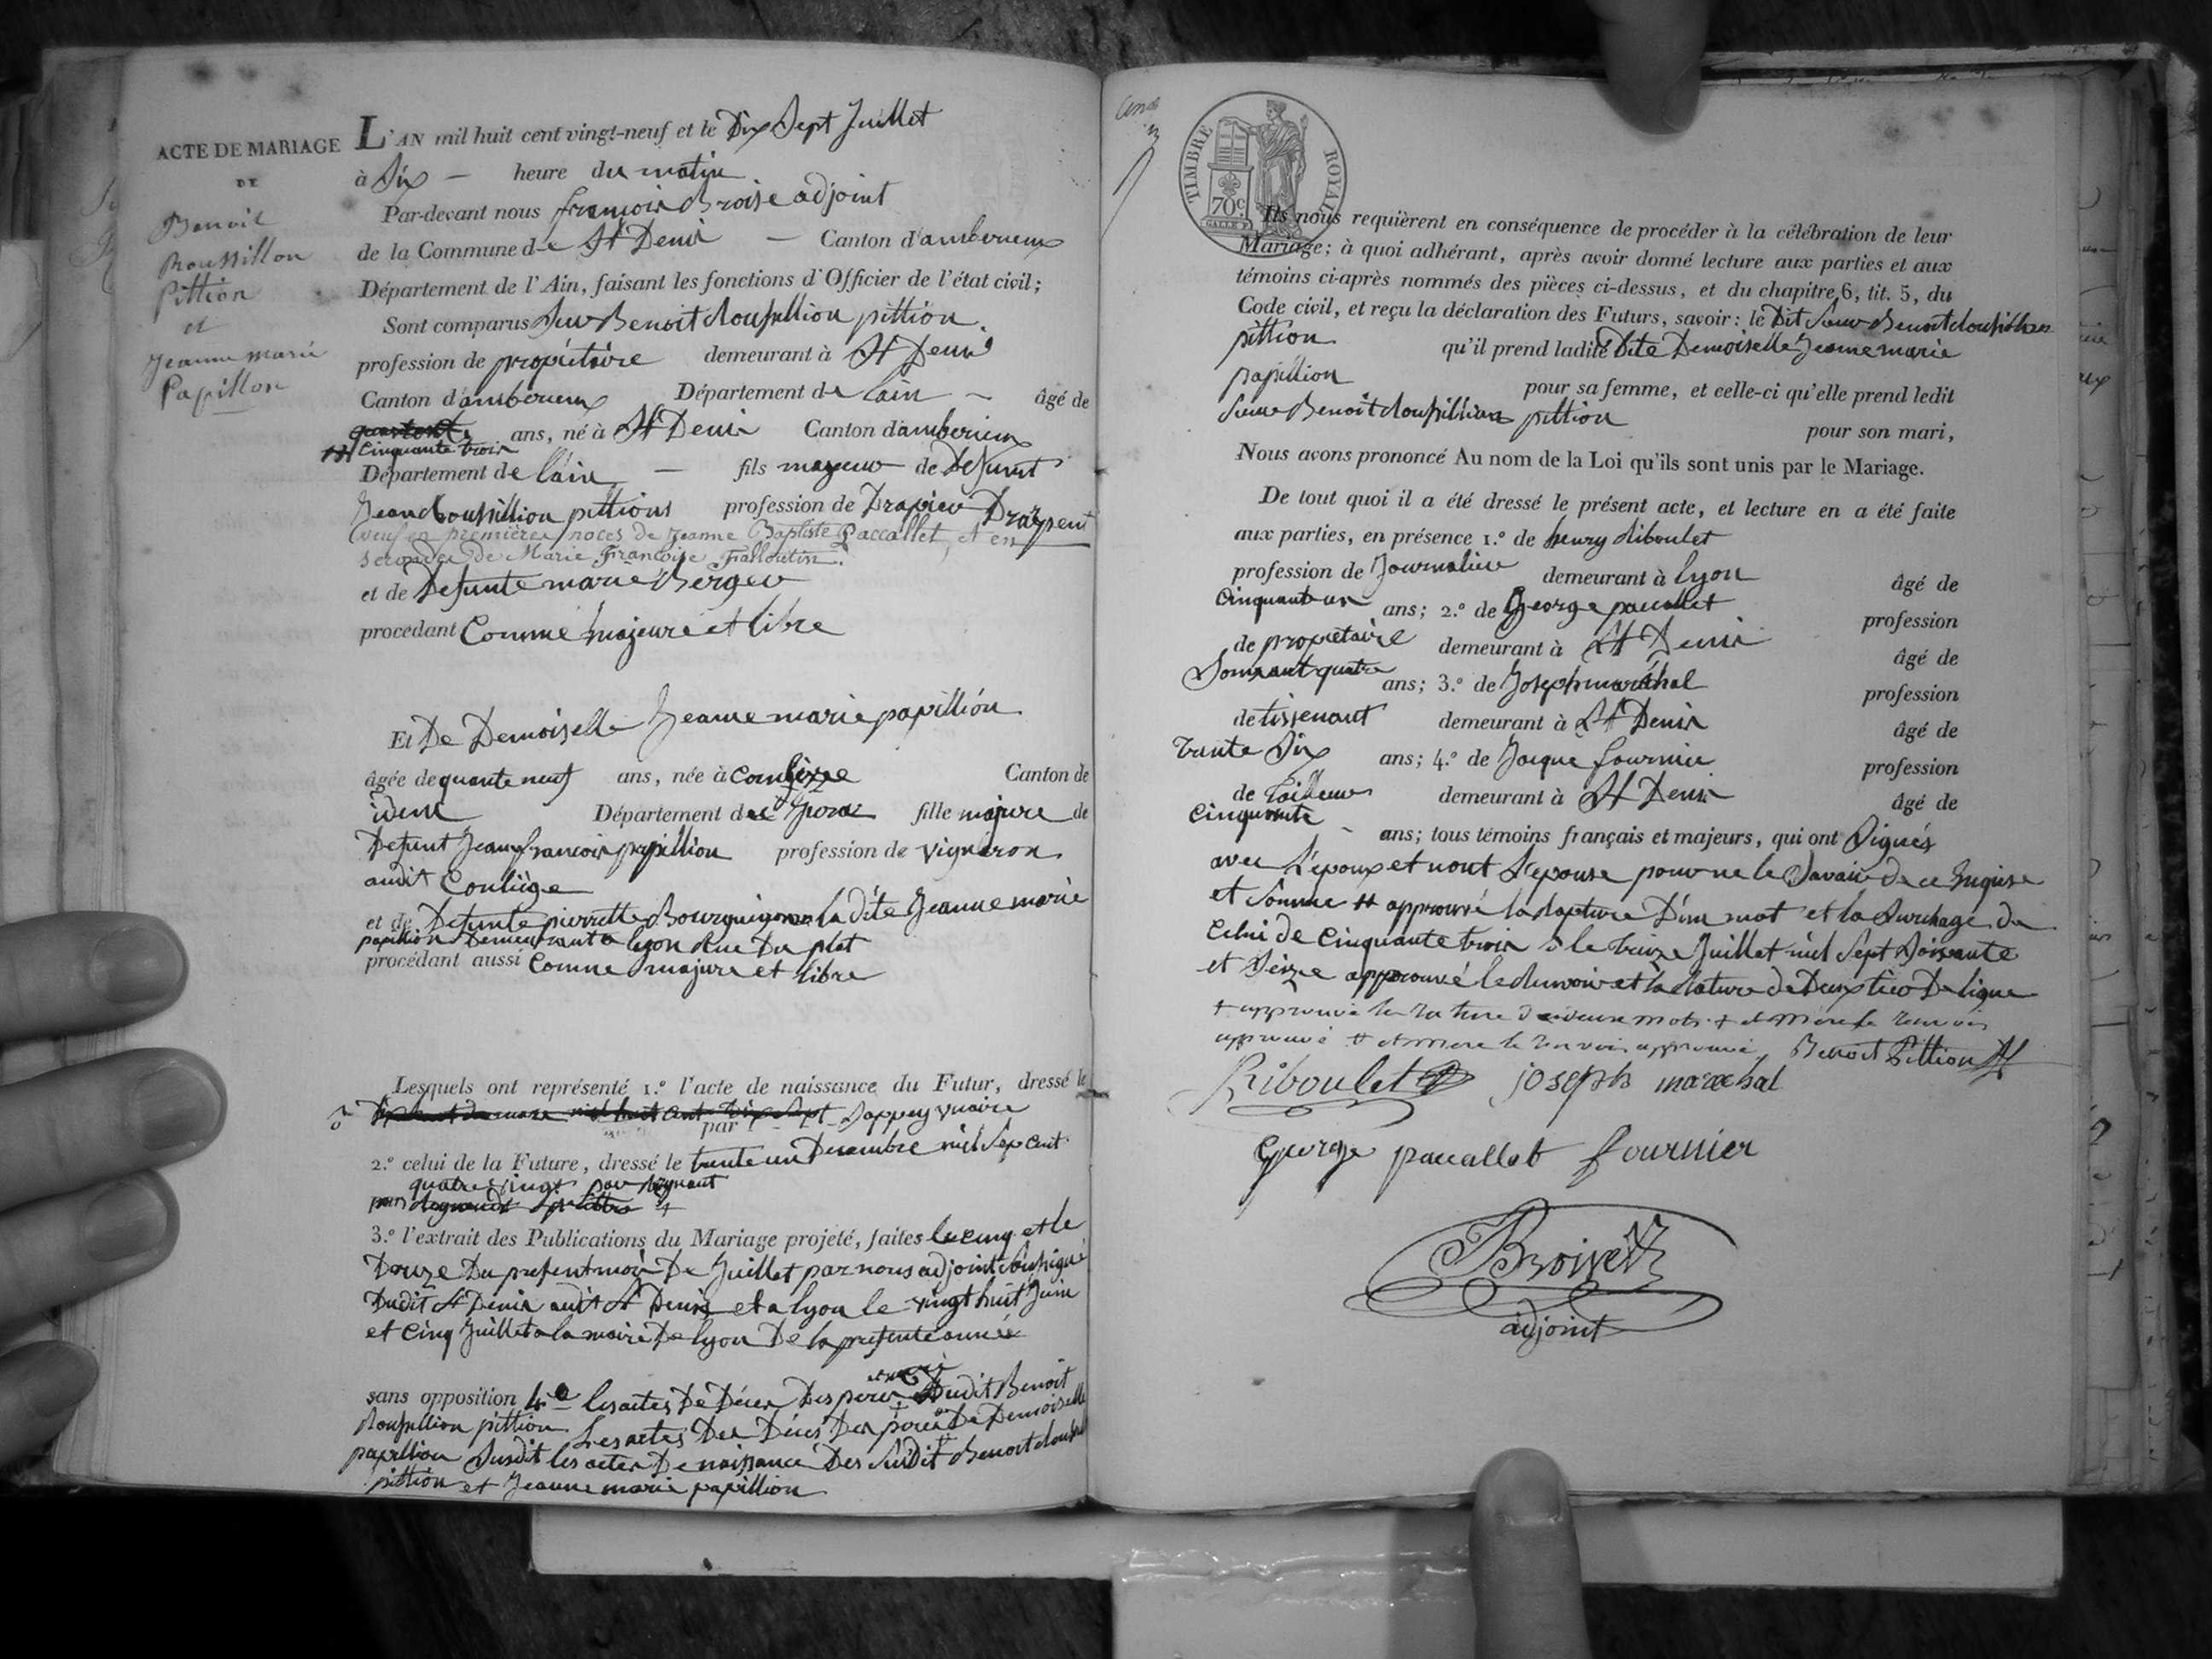 ACTE DE MARIAGE
DE
Benoit
Roussillon
Pittion
et
Jeanne marie
Papillon
L'AN mil huit cent vingt-neuf et le Dix Sept Juillet
à Dix — heure du matin
Par-devant nous françois Broise adjoint
de la Commune de St Denis — Canton d'amberieux
Département de l'Ain, faisant les fonctions d'Officier de l'état civil;
Sont comparus Sieur Benoit Roussillion pittion
profession de propriétaire demeurant à St Denis
Canton d'amberieux Département de lain — âgé de
quarante ans, né à St Denis Canton d'amberieux
cinquante trois
Département de l'ain — fils mageur de Defunt
Jean Roussillion pittions profession de Drapier Drarpent
veuf en premières noces de Jeanne Baptiste Paccallet, et en
secondes de Marie Françoise Falloutin.
et de Defunte marie Berger
procédant Comme majeure et libre
Et De Demoiselle Jeanne marie papillion
âgée de quante neuf ans, née à Conliège Canton de
idem Département du Jura fille majure de
Defunt Jean francois papillion profession de vigneron
audit Conliège
et de Defunte pierrette Bourguignon la dite Jeanne marie
papillion Demeurant a lyon Rue Du plat
procédant aussi Comme majure et libre
Lesquels ont représenté 1.º l'acte de naissance du Futur, dressé le
par Sappey vicaire
2.º celui de la Future, dressé le trente un Decembre mil Sep cent
quatre vingt par
par
3.º l'extrait des Publications du Mariage projeté, faites le cinq et le
Douze Du present mois De Juillet par nous adjoint Soussigné
Dudit St Denis audit St Denis et a lyon le vingt huit Juin
et cinq Juillet a la mairie De lyon De la presente année
sans opposition 4.e les actes De Décès Des peres Dudit Benoit
Roussillion pittion Les actes Des Décès Des peres De Demoiselle
papillion Susdit les actes De naissance Des Susdit Benoit Rouss
pittion et Jeanne marie papillion
TIMBRE ROYAL
70c
Ils nous requièrent en conséquence de procéder à la célébration de leur
Mariage; à quoi adhérant, après avoir donné lecture aux parties et aux
témoins ci-après nommés des pièces ci-dessus, et du chapitre 6, tit. 5, du
Code civil, et reçu la déclaration des Futurs, savoir: le Dit Sieur Benoit Roussillion
pittion qu'il prend ladite Dite Demoiselle Jeanne marie
papillion pour sa femme, et celle-ci qu'elle prend ledit
Sieur Benoit Roussillion pittion pour son mari,
Nous avons prononcé Au nom de la Loi qu'ils sont unis par le Mariage.
De tout quoi il a été dressé le présent acte, et lecture en a été faite
aux parties, en présence 1.º de henry Riboulet
profession de Journalier demeurant à lyon âgé de
Cinquante un ans; 2.º de George paccallet profession
de propriétaire demeurant à St Denis âgé de
Soixante quatre ans; 3.º de Joseph maréchal profession
de tisserant demeurant à St Denis âgé de
Trente Six ans; 4.º de Jacque fournier profession
de Tailleur demeurant à St Denis âgé de
cinquante — ans; tous témoins français et majeurs, qui ont Signés
avec L'époux et nont L'epouse pour ne le Savoir de ce Enquise
et Sommé # approuvé la Rapture D'un mot et la Surchage de
Celui de Cinquante trois 3 le treize Juillet mil Sept Soixante
et Seize approuvé le Renvoi et la Rature de Deux tiers De ligne
+ approuvé la rature de deux mots + et mere le renvoi
approuvé # et mere le renvoi approuvé Benoit Pittion
Riboulet joseph marechal
George paccallet fournier
Broisse
adjoint